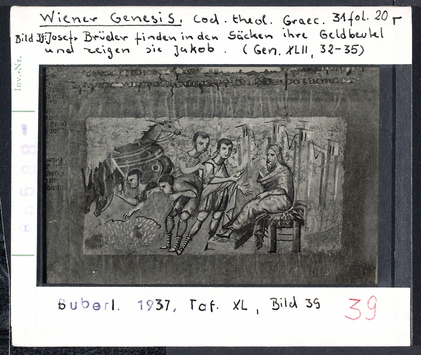 Wiener Genesis. Cod. theol. Graec. 31 fol. 20 r
Bild 39: Josefs Brüder finden in den Säcken ihre Geldbeutel
und zeigen sie Jakob. (Gen. XLII, 32-35)
Inv.-Nr.
Buberl. 1937, Taf. XL, Bild 39
39